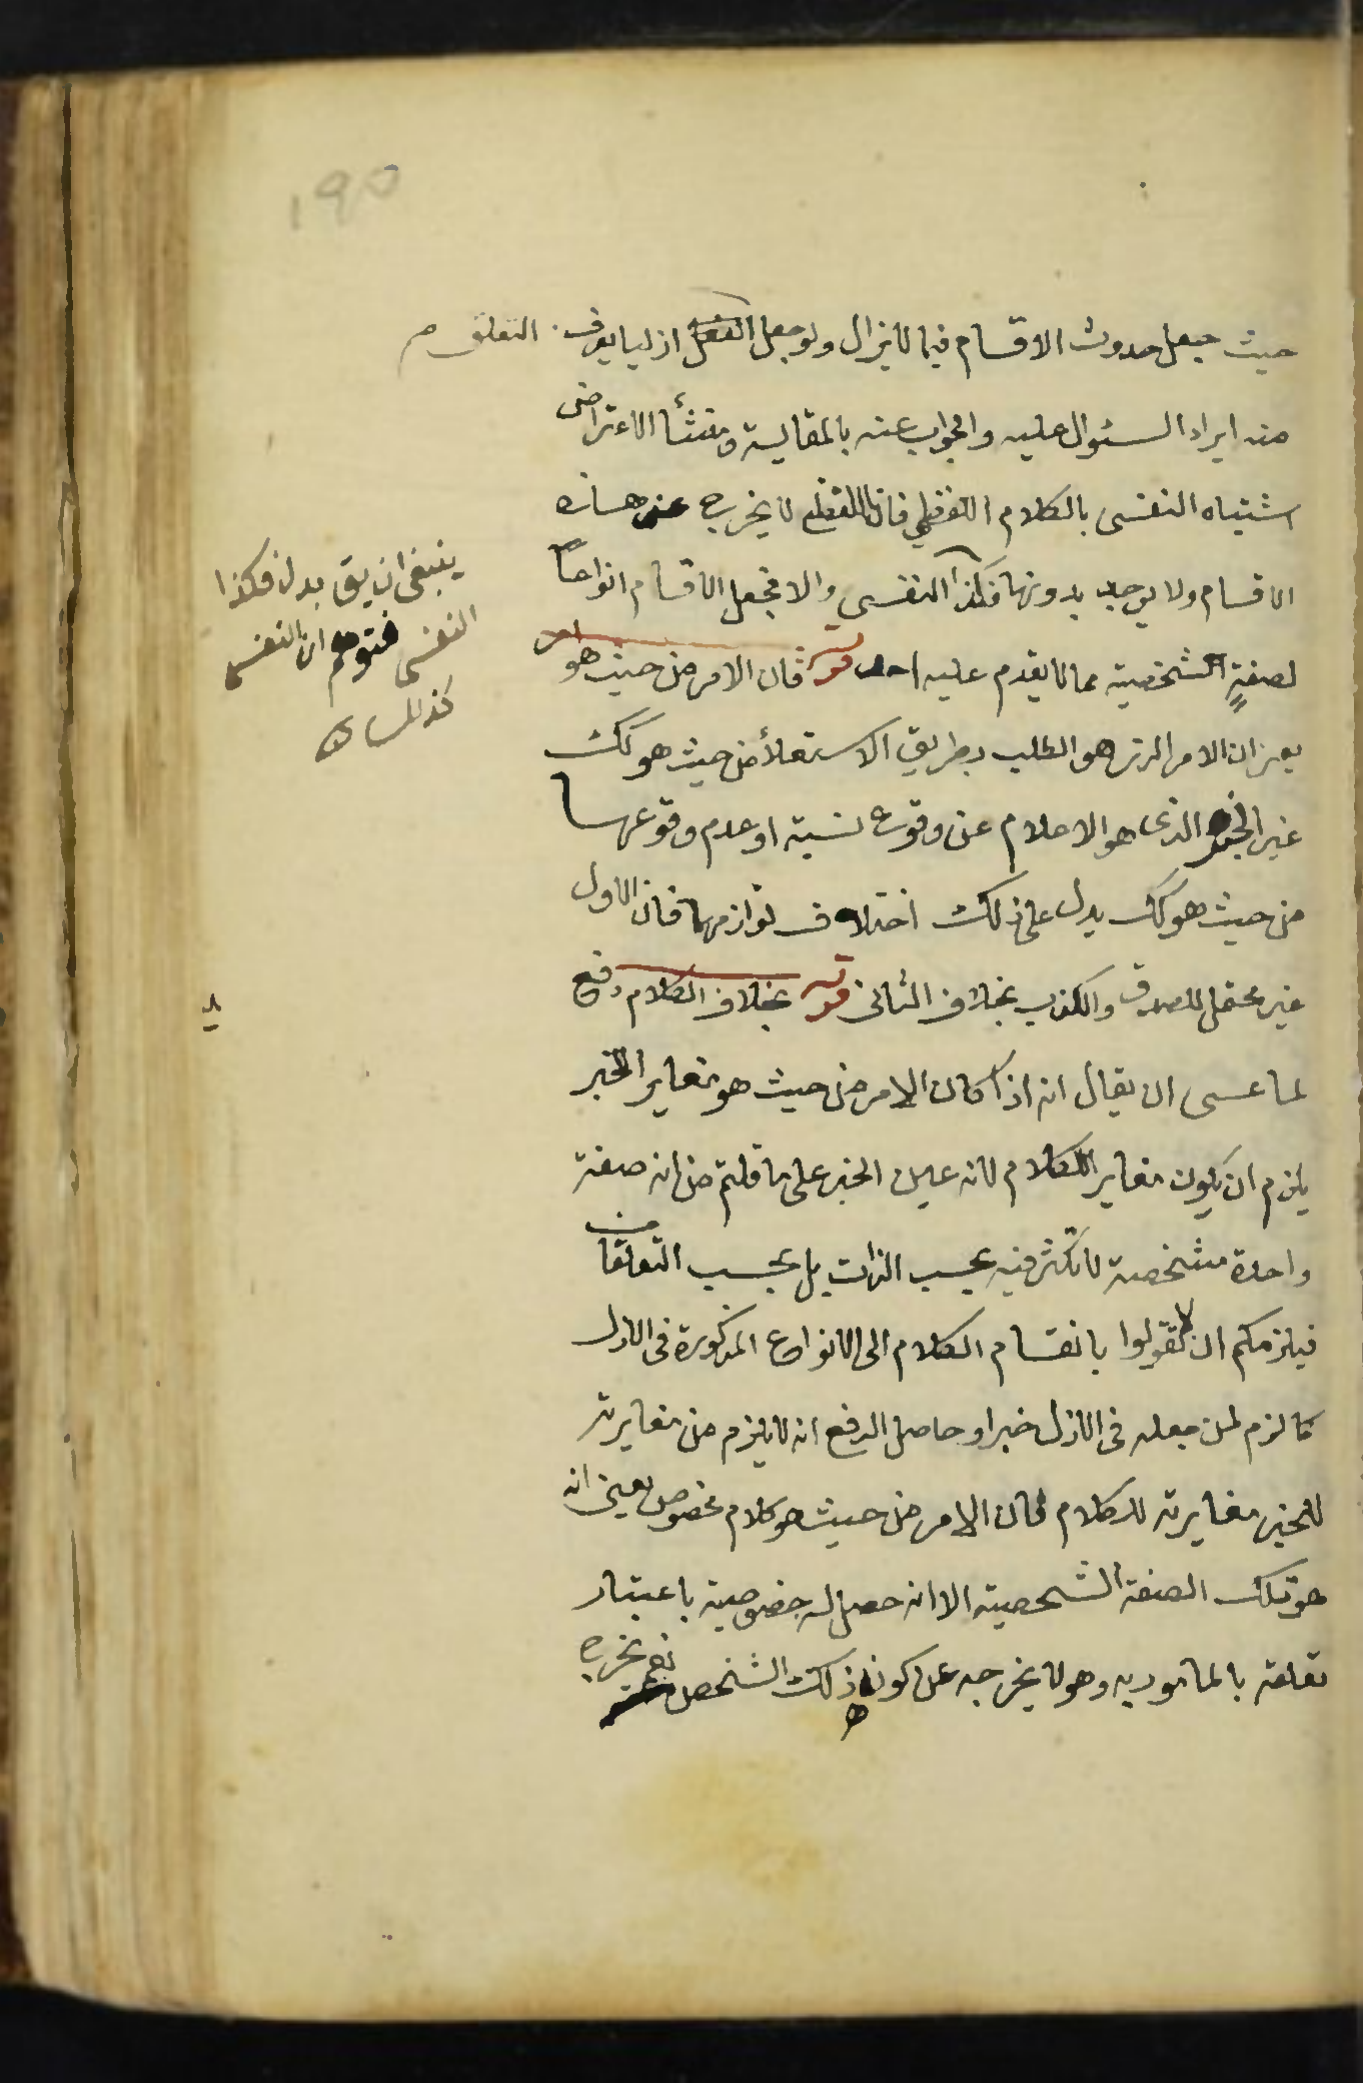 ١٩٥
حيث جعل حدوث الاقسام فيما لا يزال ولو جعل ازليا يعرف
التعلق صح
منه ايراد السئوال عليه والجواب عنه بالمقايسة ومنشأ الاعتراض
اشتباه النفسى بالكلام اللفظي فان اللفظي لا يخرج عن هذه
الاقسام ولا يوجد بدونها فكذا النفسي والا فجعل الاقسام انواعا
لصفة شخصية مما لا يقدم عليه احد قوله فان الامر من حيث هو امر
يعني ان الامر الذى هو الطلب بطريق الاستعلاء من حيث هو كك
غير الخبر الذى هو الاعلام عن وقوع نسبة او عدم وقوعها
من حيث هو كك يدل على ذلك اختلاف لوازمهما فان الاول
غير محتمل للصدق والكذب بخلاف الثانى قوله بخلاف الكلام دفع
لما عسى ان يقال انه اذا كان الامر من حيث هو مغاير الخبر
يلزم ان يكون مغاير الكلام لانه عين الخبر على ما قلتم من انه صفة
واحدة مشخصة لا تكثر فيه بحسب الذات بل بحسب التعلقات
فيلزمكم ان لا تقولوا بانقسام الكلام الى الانواع المذكورة فى الازل
كما لزم لمن جعله فى الازل خبرا وحاصل الدفع انه لا يلزم من مغايرته
للخبر مغايرته للكلام فان الامر من حيث هو كلام مخصوص يعنى انه
هو تلك الصفة الشخصية الا انه حصل له خصوصية باعتبار
تعلقه بالمامور به وهو لا يخرجه عن كونه ذلك الشخص نعم يخرج
ينبغى ان يق بدل فكذا
النفسى فتوهم ان النفسى
كذلك